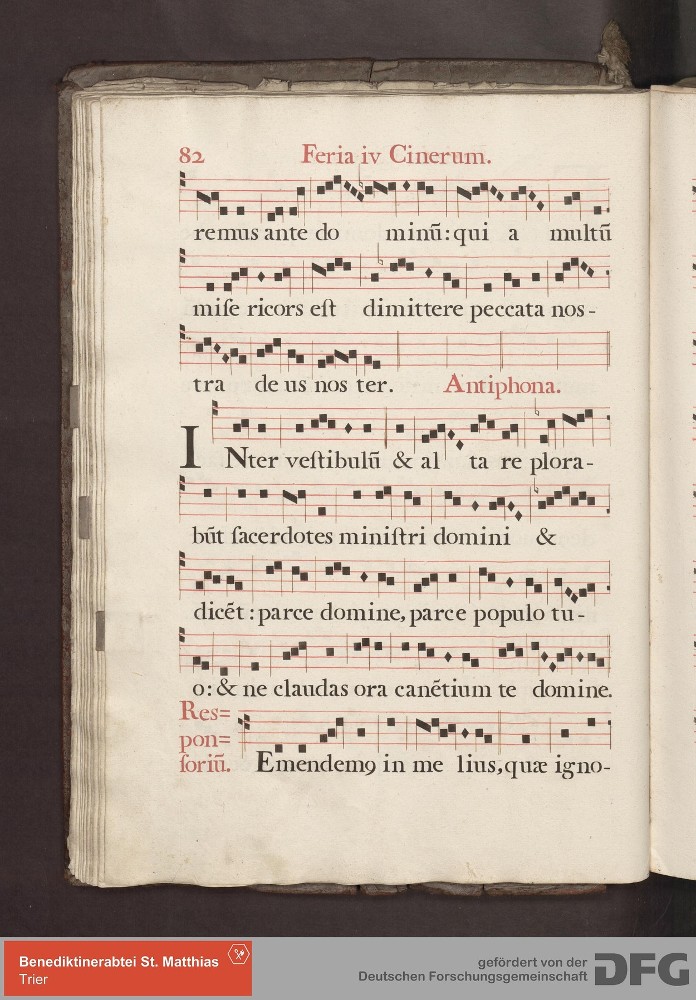 82 Feria iv Cinerum.
remus ante do minū: qui a multū
miſe ricors eſt dimittere peccata nos-
tra de us nos ter. Antiphona.
INter veſtibulū & al ta re plora-
būt ſacerdotes miniſtri domini &
dicēt: parce domine, parce populo tu-
o: & ne claudas ora canētium te domine.
Res=
pon=
ſoriū. Emendemꝯ in me lius, quæ igno-
Benediktinerabtei St. Matthias
Trier
gefördert von der
Deutschen Forschungsgemeinschaft DFG